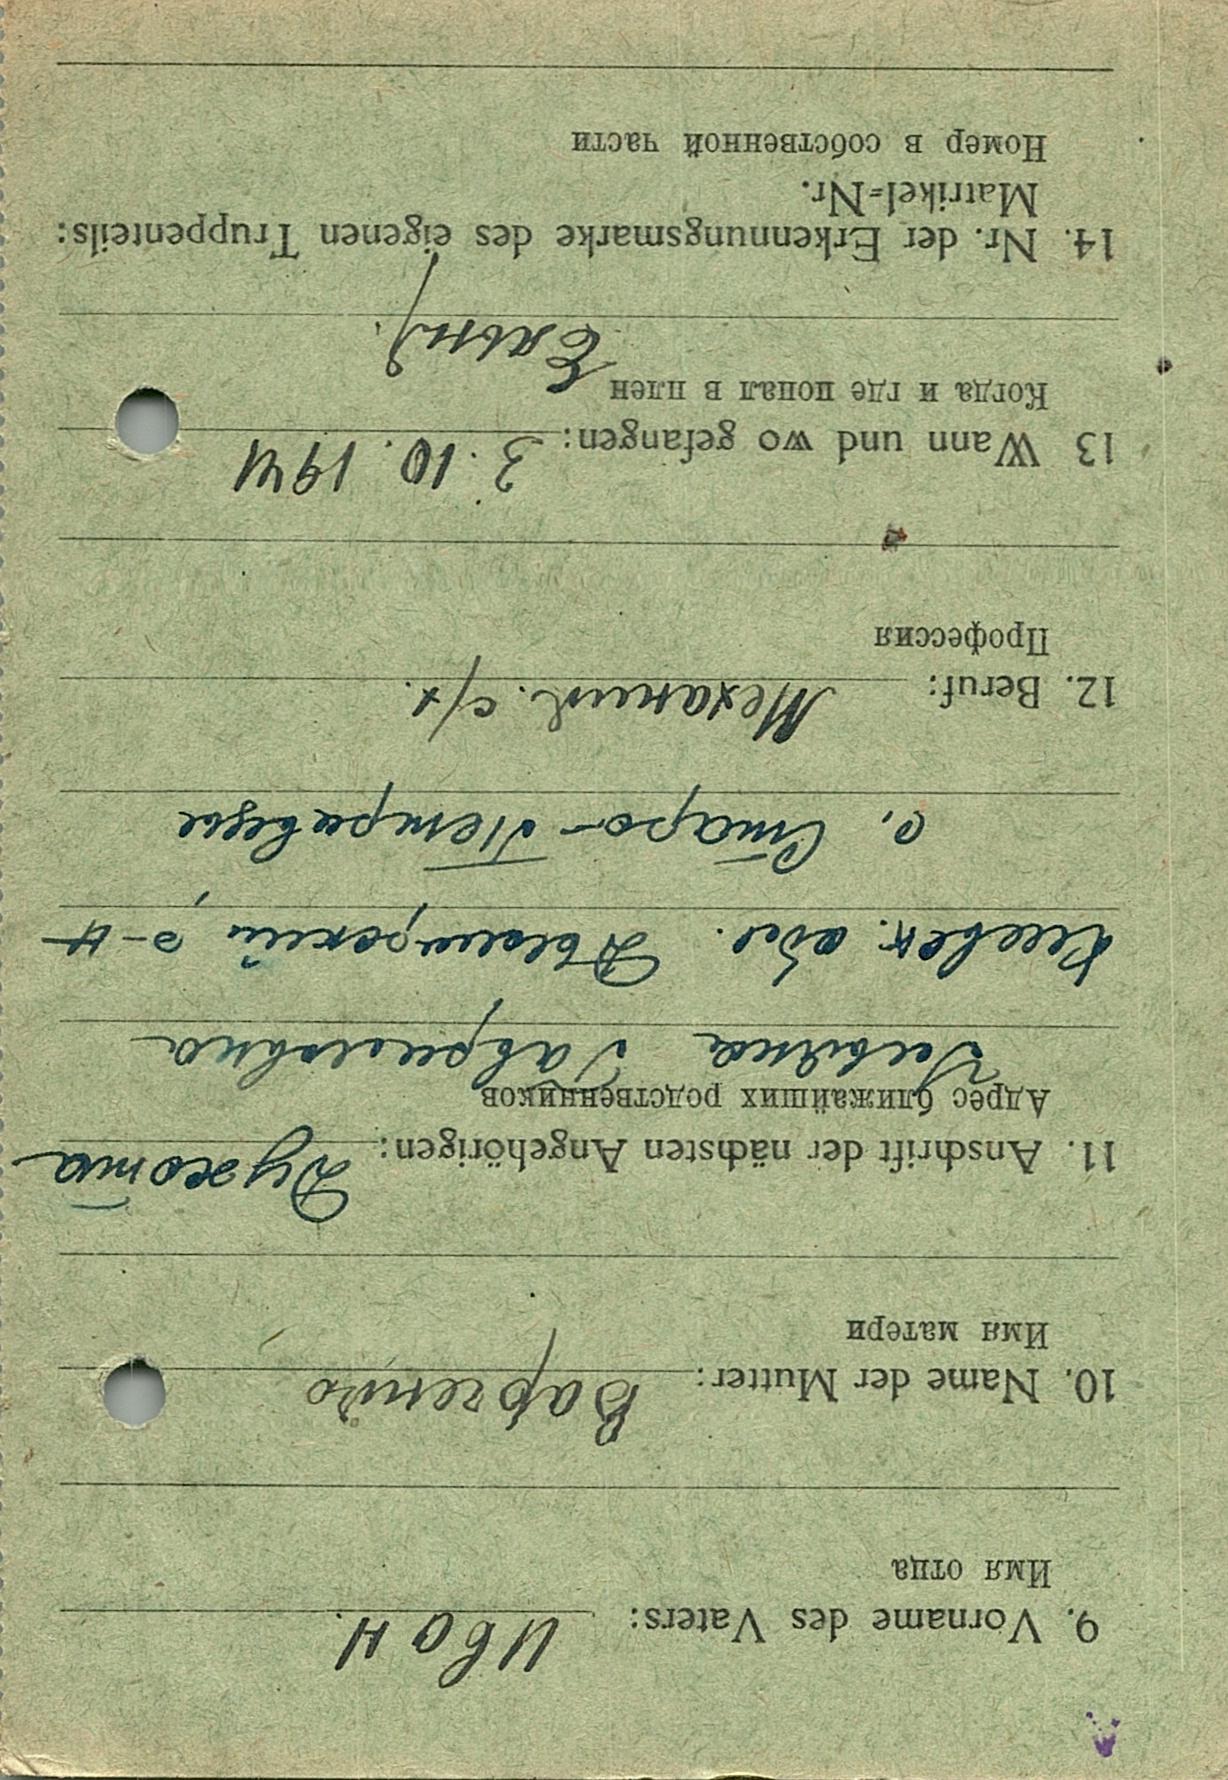 9. Vorname des Vaters: Иван.
Имя отца
10. Name der Mutter:
Имя матери
11. Anschrift der nächsten Angehörigen: Духота
Адрес ближайших родственников
Ульяна Гавриловна
Киевск. обл. Дымерский р-н
с. Старо-Петровцы
12. Beruf: Механик с/х.
Профессия
13 Wann und wo gefangen: 3.10.1941
Когда и где попал в плен
14. Nr. der Erkennungsmarke des eigenen Truppenteils:
Matrikel=Nr.
Номер в собственной части